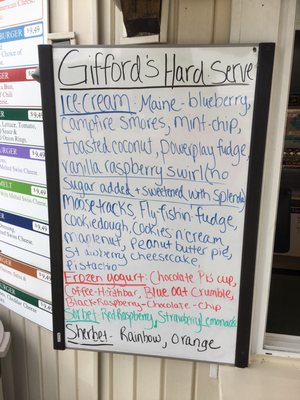 Gifford's Hard-Serve
Ice-cream: Maine-blueberry,
Campfire Smores, mint-chip,
toasted coconut, powerplay fudge,
vanilla raspberry swirl (no
Sugar added + sweetened with Splenda)
Moosetracks, Fly fishin fudge,
cookiedough, Cookies n cream
maplenut, Peanut butter pie,
Strawberry cheesecake,
Pistachio
Frozen yogurt: Chocolate PB cup,
Coffee-Heathbar, Blue oat Crumble,
Black-Raspberry-Chocolate-Chip
Sorbet: Red Raspberry, Strawberry Lemonade
Sherbet: Rainbow, Orange
BURGER $9.49
$9.49
$9.49
$9.49
MELT $9.49
$9.49